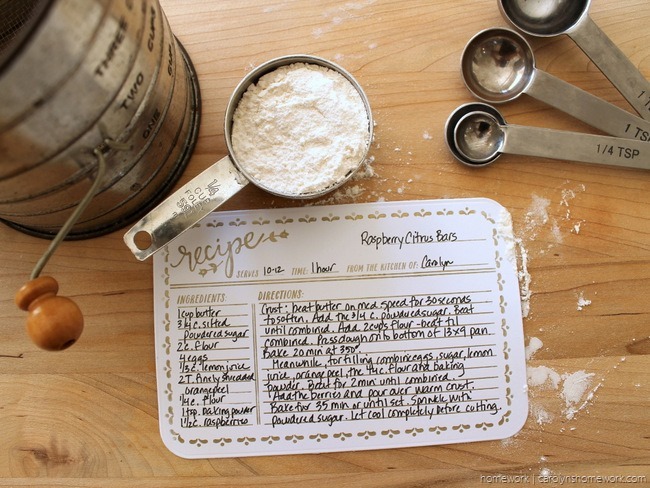 THREE CUPS
TWO CUPS
ONE
1/4 TSP
1 TSP
recipe
Raspberry Citrus Bars
SERVES 10-12 TIME: 1 hour FROM THE KITCHEN OF: Carolyn
INGREDIENTS:
1 cup butter
3/4 c. sifted
powdered sugar
2 c. flour
4 eggs
1/3 c. lemon juice
2 T. finely shredded
orange peel
1/4 c. flour
1 tsp. baking powder
1 1/2 c. raspberries
DIRECTIONS:
Crust: beat butter on med speed for 30 seconds
to soften. Add the 3/4 c. powdered sugar. Beat
until combined. Add 2 cups flour - beat til
combined. Press dough onto bottom of 13x9 pan.
Bake 20 min at 350°.
Meanwhile, for filling combine eggs, sugar, lemon
juice, orange peel, the 1/4 c. flour and baking
powder. Beat for 2 min until combined.
Add the berries and pour over warm crust.
Bake for 35 min or until set. Sprinkle with
powdered sugar. Let cool completely before cutting.
homework | carolynshomework.com